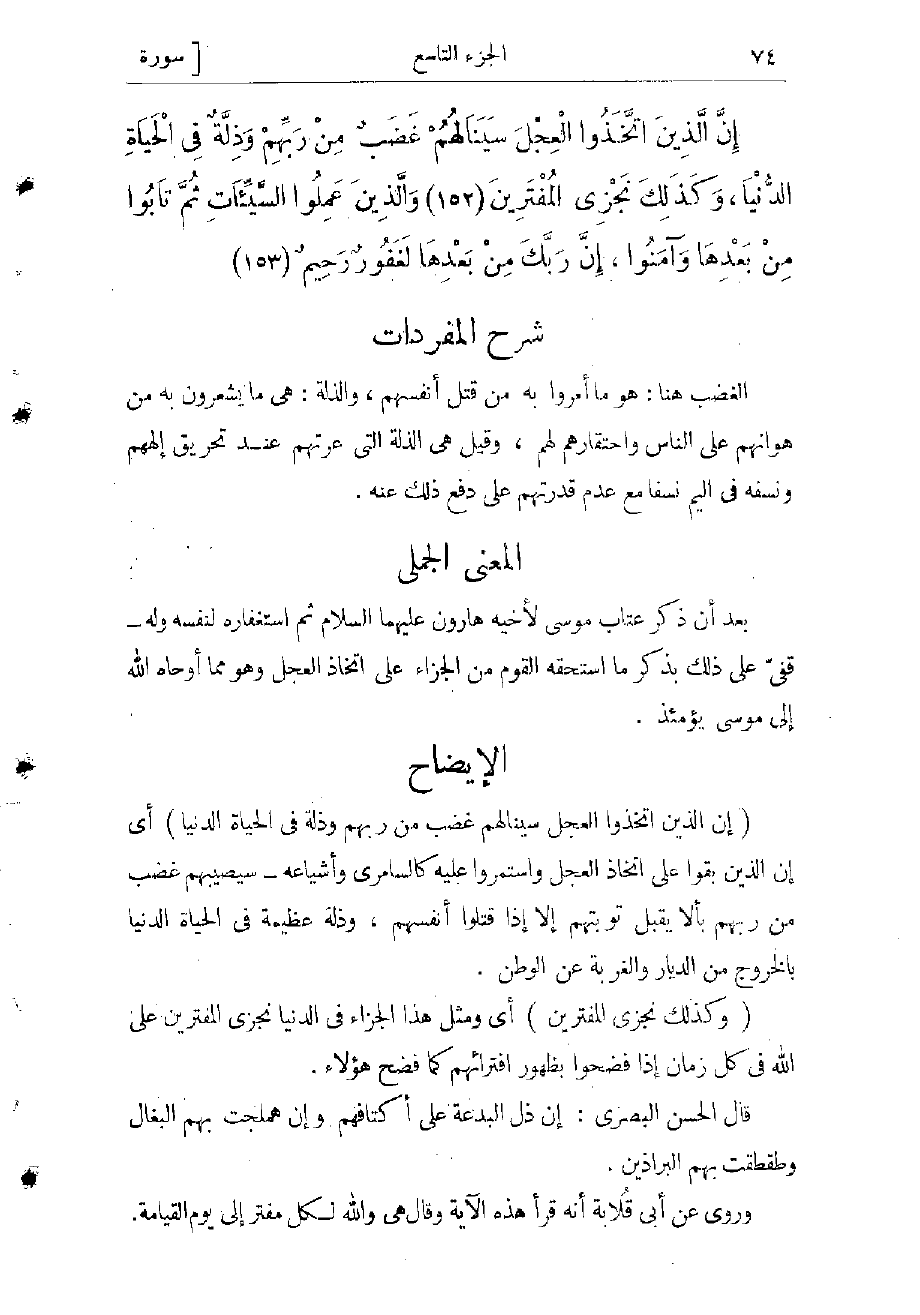 ٧٤ الجزء التاسع [ سورة
إِنَّ الَّذِينَ اتَّخَذُوا الْعِجْلَ سَيَنَالُهُمْ غَضَبٌ مِنْ رَبِّهِمْ وَذِلَّةٌ فِى الْحَيَاةِ
الدُّنْيَا، وَكَذَلِكَ نَجْزِى الْمُفْتَرِينَ (١٥٢) وَالَّذِينَ عَمِلُوا السَّيِّئَاتِ ثُمَّ تَابُوا
مِنْ بَعْدِهَا وَآمَنُوا ، إِنَّ رَبَّكَ مِنْ بَعْدِهَا لَغَفُورٌ رَحِيمٌ (١٥٣)
شرح المفردات
الغضب هنا : هو ما أمروا به من قتل أنفسهم ، والذلة : هى ما يشعرون به من
هوانهم على الناس واحتقارهم لهم ، وقيل هى الذلة التى عرتهم عنـد تحريق إلههم
ونسفه فى اليم نسفا مع عدم قدرتهم على دفع ذلك عنه .
المعنى الجملى
بعد أن ذكر عتاب موسى لأخيه هارون عليهما السلام ثم استغفاره لنفسه وله ــ
قفىّ على ذلك بذكر ما استحقه القوم من الجزاء على اتخاذ العجل وهو مما أوحاه الله
إلى موسى يؤمئذ .
الإيضاح
( إن الذين اتخذوا العجل سينالهم غضب من ربهم وذلة فى الحياة الدنيا ) أى
إن الذين بقوا على اتخاذ العجل واستمروا عليه كالسامرى وأشياعه ــ سيصيبهم غضب
من ربهم بألا يقبل توبتهم إلا إذا قتلوا أنفسهم ، وذلة عظيمة فى الحياة الدنيا
بالخروج من الديار والغربة عن الوطن .
( وكذلك نجزى المفترين ) أى ومثل هذا الجزاء فى الدنيا نجزى المفترين على
الله فى كل زمان إذا فضحوا بظهور افترائهم كما فضح هؤلاء .
قال الحسن البصرى : إن ذل البدعة على أكتافهم وإن هملجت بهم البغال
وطقطقت بهم البراذين .
وروى عن أبى قُلابة أنه قرأ هذه الآية وقال هى والله لـكل مفتر إلى يوم القيامة.